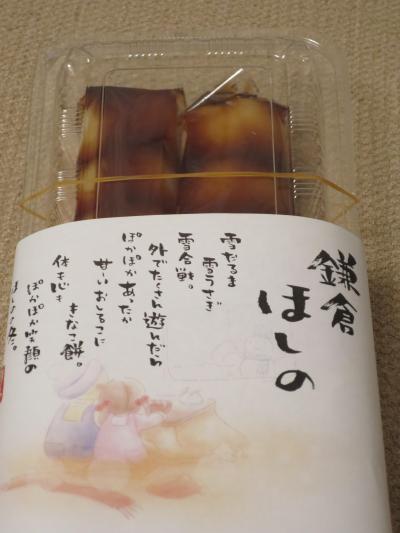 鎌倉
ほしの
雪だるま
雪うさぎ
雪合戦。
外でたくさん遊んだら
ぽかぽかあったか
甘〜いおしるこに
きなこ餅。
体も心も
ぽかぽか笑顔の